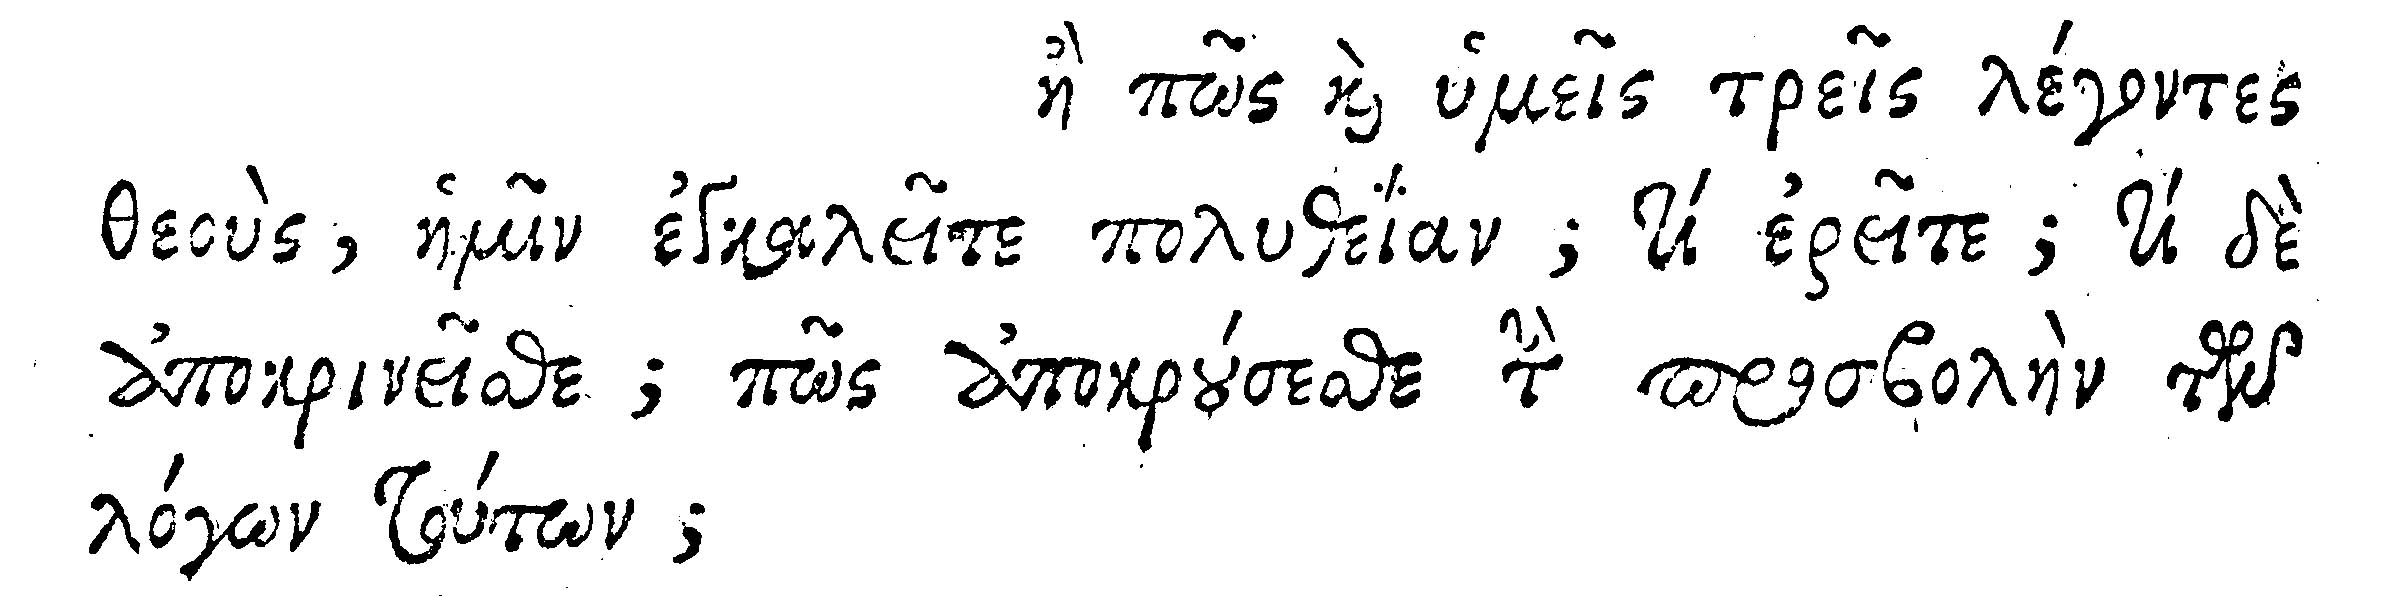 ἢ πῶς καὶ ὑμεῖς τρεῖς λέγοντες
θεοὺς, ἡμῖν ἐγκαλεῖτε πολυθεΐαν; τί ἐρεῖτε; τί δὲ
ἀποκρινεῖσθε; πῶς ἀποκρούσεσθε τὴν προσβολὴν τῶν
λόγων τούτων;